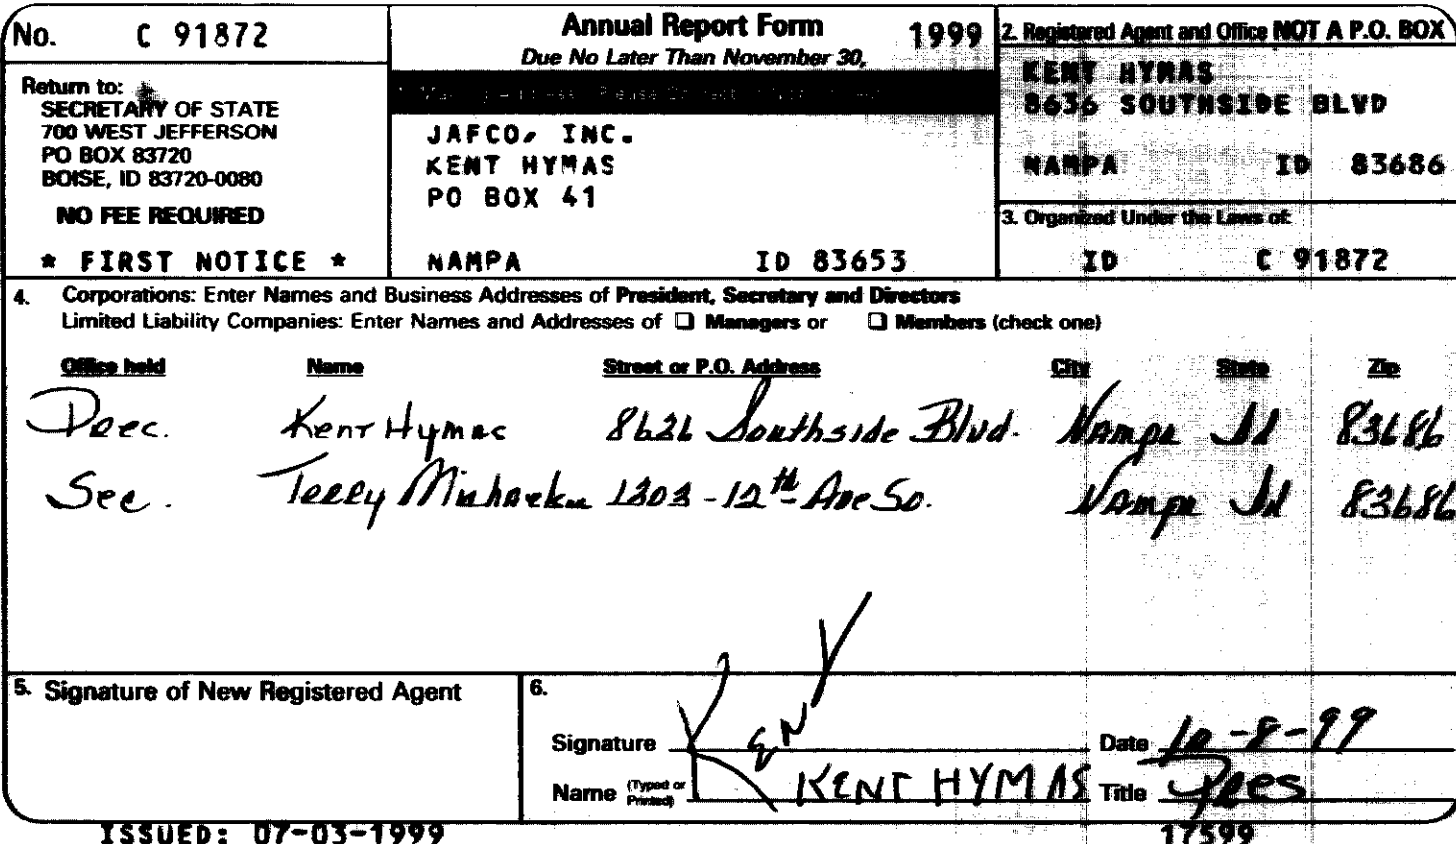 No. C 91872
Return to:
SECRETARY OF STATE
700 WEST JEFFERSON
PO BOX 83720
BOISE, ID 83720-0080
NO FEE REQUIRED
* FIRST NOTICE *
Annual Report Form 1999
Due No Later Than November 30,
JAFCO, INC.
KENT HYMAS
PO BOX 41
NAMPA ID 83653
2. Registered Agent and Office NOT A P.O. BOX
KENT HYMAS
8636 SOUTHSIDE BLVD
NAMPA ID 83686
3. Organized Under the Laws of:
ID C 91872
4. Corporations: Enter Names and Business Addresses of President, Secretary and Directors
Limited Liability Companies: Enter Names and Addresses of ☐ Managers or ☐ Members (check one)
Office held Name Street or P.O. Address City State Zip
Kent Hymas Southside Blvd. Nampa Id 83686
Sec. Terry 1303-12th Ave So. Nampa Id 83686
5. Signature of New Registered Agent
6.
Signature Kent Date 10-8-99
Name (Typed or Printed) KENT HYMAS Title Pres
ISSUED: 07-03-1999 17599